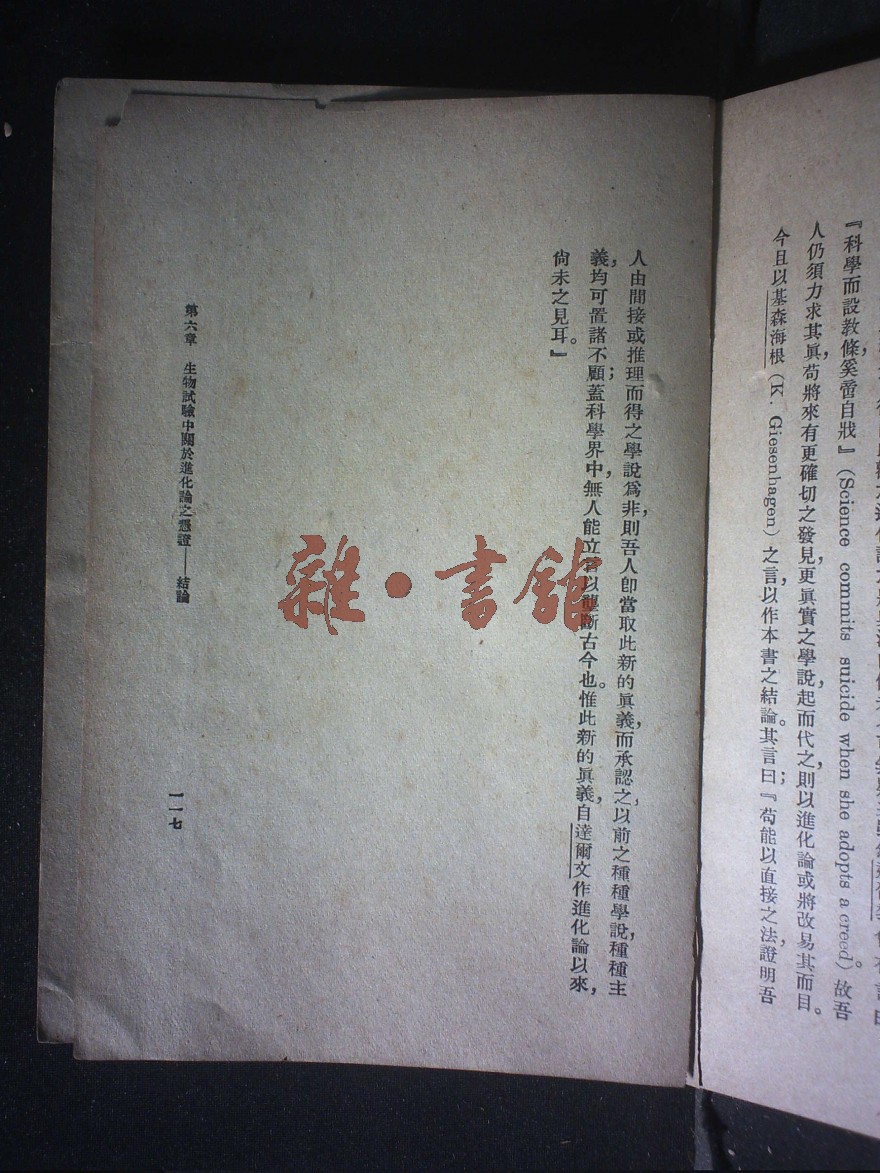 『科學而設教條奚啻自戕』(Science commits suicide when she adopts a creed)故吾
人仍須力求其眞,苟將來有更確切之發見,更眞實之學說,起而代之,則以進化論或將改易其面目。
今且以基森海根(K. Giesenhagen)之言,以作本書之結論。其言曰;『苟能以直接之法,證明吾
人由間接或推理而得之學說爲非,則吾人卽當取此新的眞義,而承認之,以前之種種學說,種種主
義,均可置諸不顧;蓋科學界中,無人能立言以壟斷古今也。惟此新的眞義,自達爾文作進化論以來,
尙未之見耳。』
第六章 生物試驗中關於進化論之憑證——結論
一一七
雜·書館